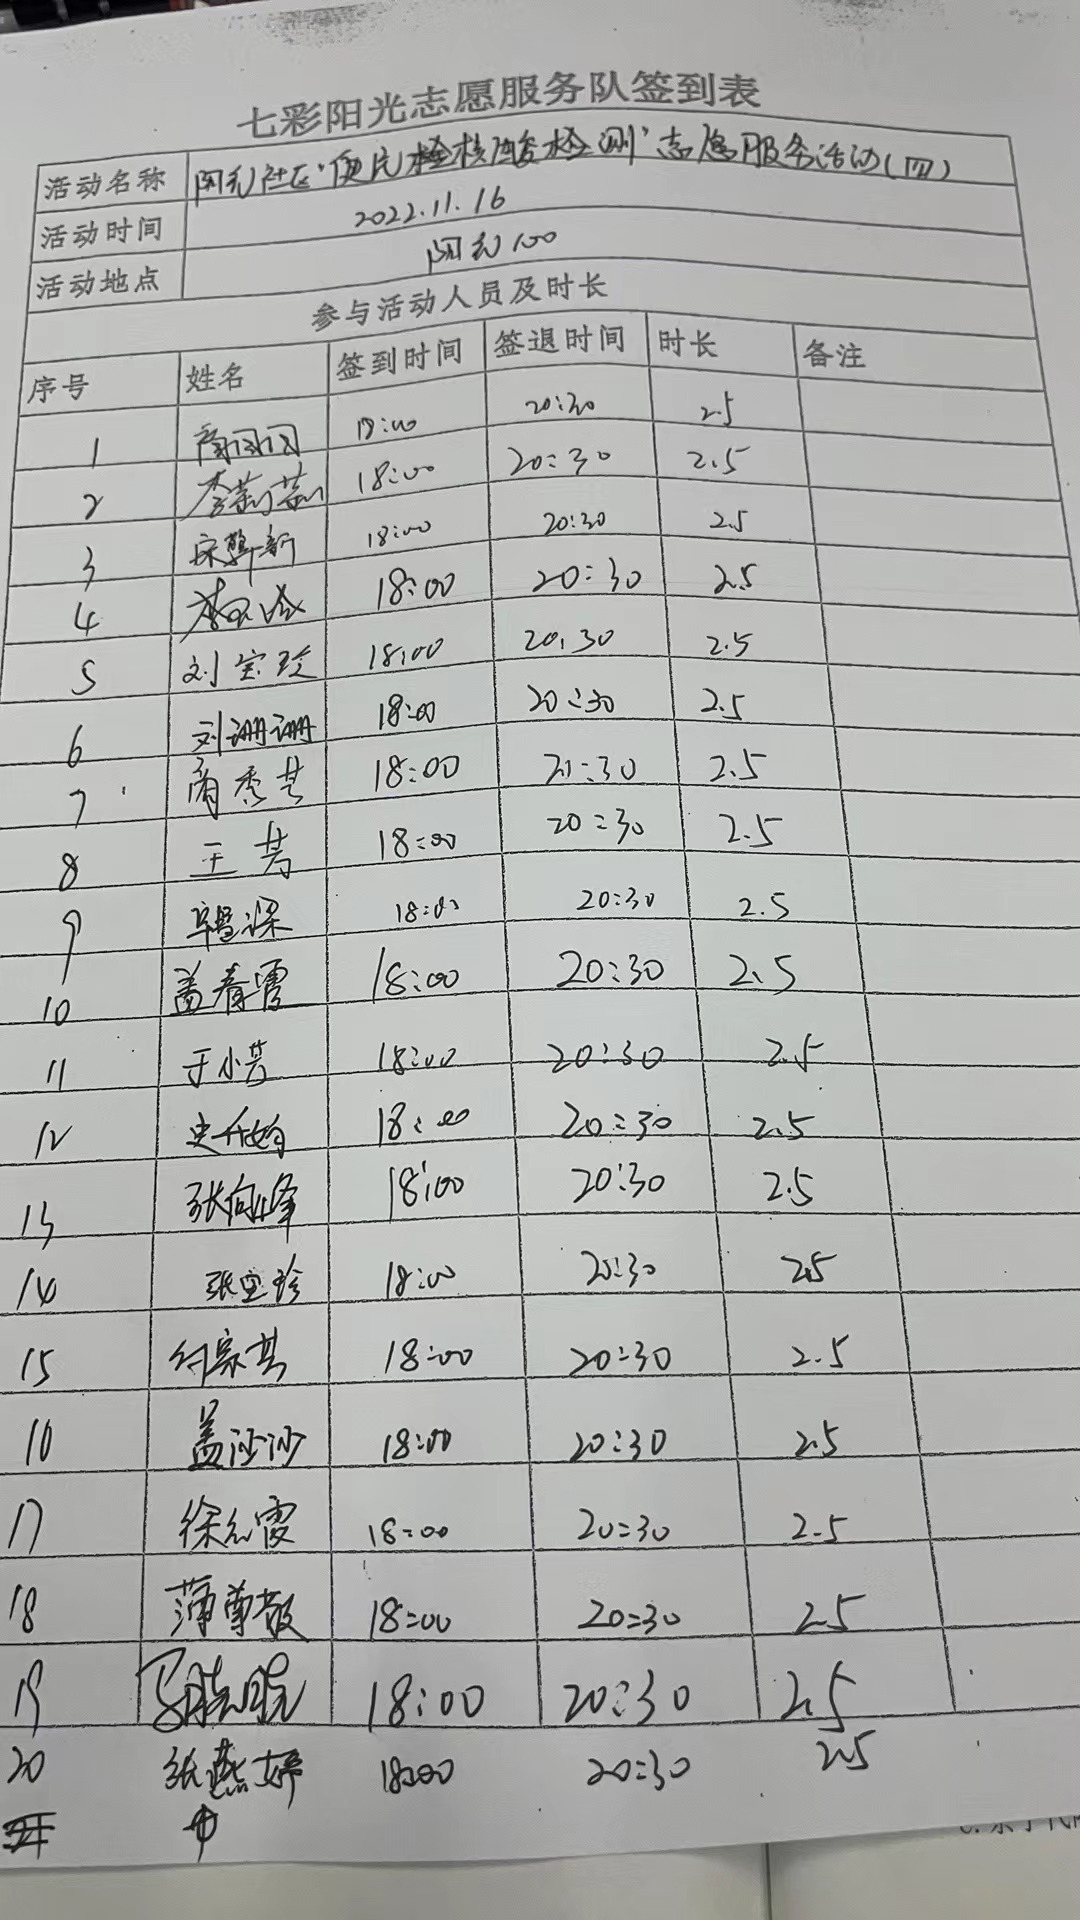 七彩阳光志愿服务队签到表
活动名称 社区"便民 核酸检测"志愿服务活动(四)
活动时间 2022.11.16
活动地点 100
参与活动人员及时长
序号 姓名 签到时间 签退时间 时长 备注
1 18:00 20:30 2.5
2 李莉莉 18:00 20:30 2.5
3 18:00 20:30 2.5
4 18:00 20:30 2.5
5 刘宝玲 18:00 20:30 2.5
6 刘珊珊 18:00 20:30 2.5
7 18:00 20:30 2.5
8 王芳 18:00 20:30 2.5
9 18:00 20:30 2.5
10 盖春霄 18:00 20:30 2.5
11 于小芳 18:00 20:30 2.5
12 18:00 20:30 2.5
13 张向峰 18:00 20:30 2.5
14 张宝珍 18:00 20:30 2.5
15 18:00 20:30 2.5
16 盖沙沙 18:00 20:30 2.5
17 18:00 20:30 2.5
18 蒲尊敬 18:00 20:30 2.5
19 18:00 20:30 2.5
20 张燕婷 18:00 20:30 2.5